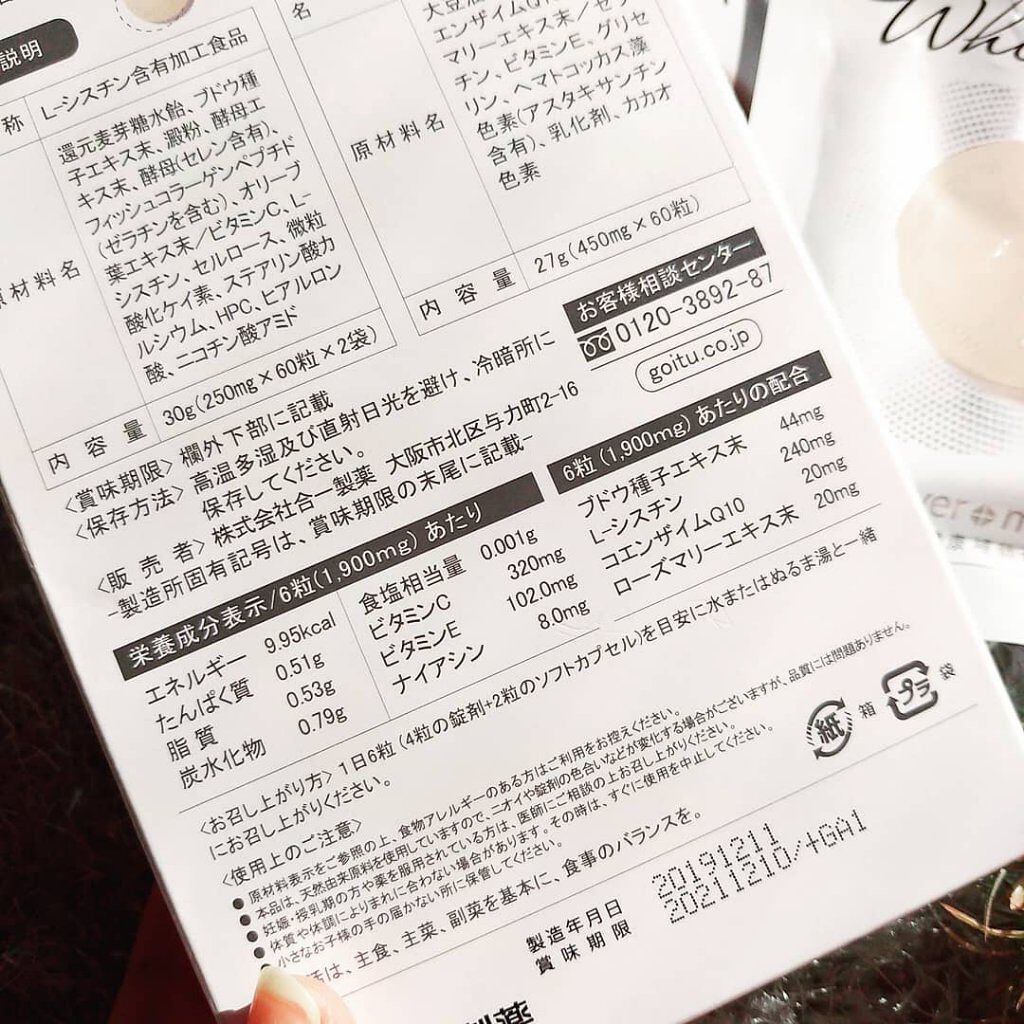 説明
称 L-シスチン含有加工食品
原材料名
還元麦芽糖水飴、ブドウ種
子エキス末、澱粉、酵母エ
キス末、酵母(セレン含有)、
フィッシュコラーゲンペプチド
(ゼラチンを含む)、オリーブ
葉エキス末/ビタミンC、L-
シスチン、セルロース、微粒
酸化ケイ素、ステアリン酸カ
ルシウム、HPC、ヒアルロン
酸、ニコチン酸アミド
内容量 30g(250mg×60粒×2袋)
名
原材料名
エンザイムQ10
マリーエキス末/ゼラ
チン、ビタミンE、グリセ
リン、ヘマトコッカス藻
色素(アスタキサンチン
含有)、乳化剤、カカオ
色素
内容量 27g(450mg×60粒)
〈賞味期限〉欄外下部に記載
〈保存方法〉高温多湿及び直射日光を避け、冷暗所に
保存してください。
〈販売者〉株式会社合一製薬 大阪市北区与力町2-16
-製造所固有記号は、賞味期限の末尾に記載-
お客様相談センター
0120-3892-87
goitu.co.jp
栄養成分表示/6粒(1,900mg)あたり
エネルギー 9.95kcal
たんぱく質 0.51g
脂質 0.53g
炭水化物 0.79g
食塩相当量 0.001g
ビタミンC 320mg
ビタミンE 102.0mg
ナイアシン 8.0mg
6粒(1,900mg)あたりの配合
ブドウ種子エキス末 44mg
L-シスチン 240mg
コエンザイムQ10 20mg
ローズマリーエキス末 20mg
〈お召し上がり方〉1日6粒(4粒の錠剤+2粒のソフトカプセル)を目安に水またはぬるま湯と一緒
にお召し上がりください。
〈使用上のご注意〉
●原材料表示をご参照の上、食物アレルギーのある方はご利用をお控えください。
●本品は、天然由来原料を使用していますので、ニオイや錠剤の色合いなどが変化する場合がございますが、品質には問題ありません。
●妊娠・授乳期の方や薬を服用されている方は、医師にご相談の上お召し上がりください。
●体質や体調によりまれに合わない場合があります。その時は、すぐに使用を中止してください。
●小さなお子様の手の届かない所に保管してください。
は、主食、主菜、副菜を基本に、食事のバランスを。
紙 箱
プラ 袋
製造年月日 20191211
賞味期限 20211210/+GA1
製薬